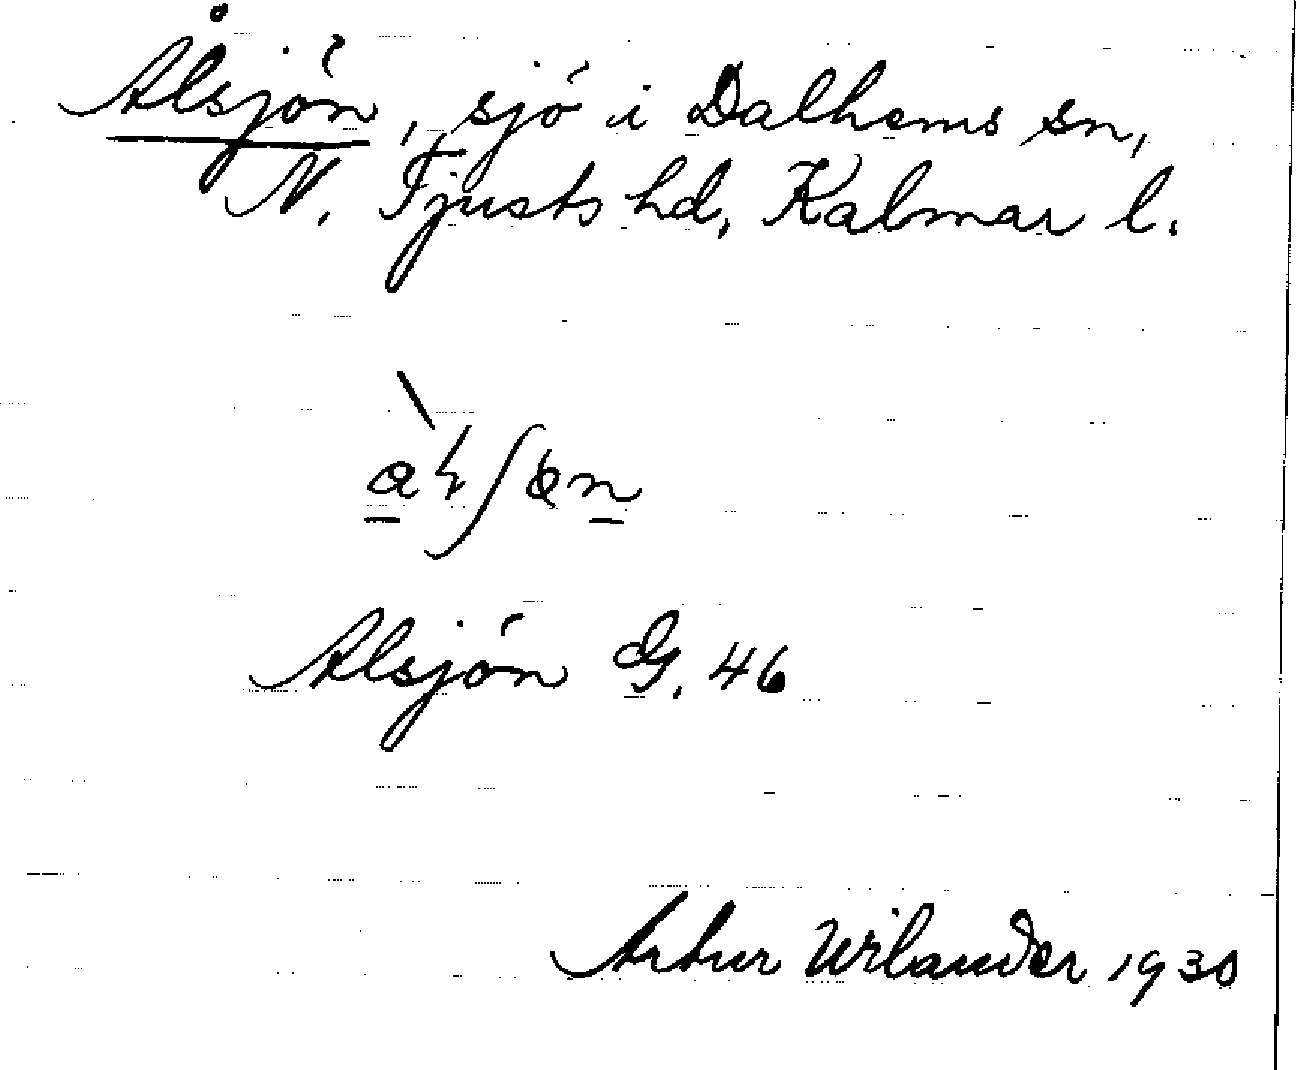 Ålsjön, sjö i Dalhems sn,
N. Tjusts hd, Kalmar l.
Alsjön G. 46
Artur Wilander 1930